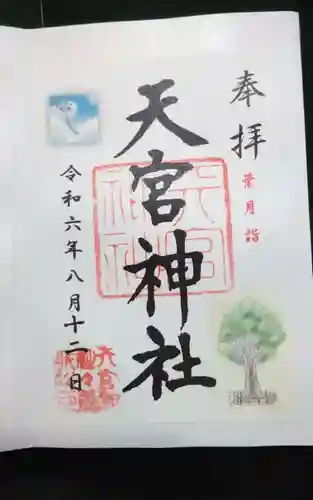 奉拝
葉月詣
天宮神社
令和六年八月十二日